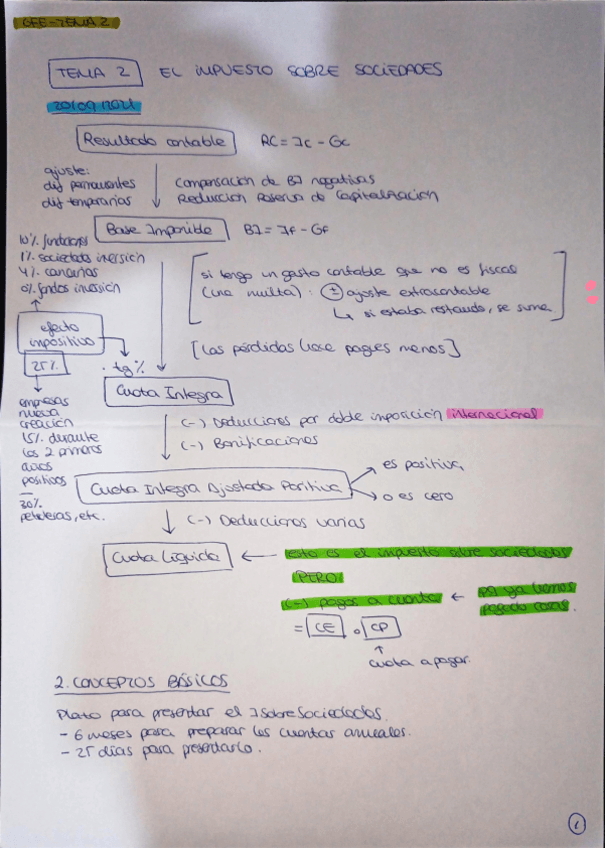 GEE-TEMA 2
TEMA 2 EL IMPUESTO SOBRE SOCIEDADES
20/09/2021
Resultado contable RC = Ic - Gc
ajuste:
dif permanentes
dif temporarias
Compensación de BI negativas
Reducción Reserva de Capitalización
Base Imponible BI = If - Gf
10% fundaciones
1% sociedades inversión
4% canarias
0% fondos inversión
si tengo un gasto contable que no es fiscal
(una multa): ± ajuste extracontable
↳ si estaba restando, se suma
[Las pérdidas hace pagues menos]
efecto
impositivo
25%
· tg%
Cuota Integra
empresas
nueva
creación
15% durante
los 2 primeros
años
positivos
—
30%
petroleras, etc.
(-) Deducciones por doble imposición internacional
(-) Bonificaciones
Cuota Integra Ajustada Positiva
es positiva,
o es cero
(-) Deducciones varias
Cuota Líquida ← esto es el impuesto sobre sociedades
PERO
(-) pagos a cuenta ← ya hemos
pagado cosas.
= CE o CP
↑
cuota a pagar.
2. CONCEPTOS BÁSICOS
Plazo para presentar el I sobre Sociedades.
- 6 meses para preparar las cuentas anuales.
- 25 días para presentarlo.
1